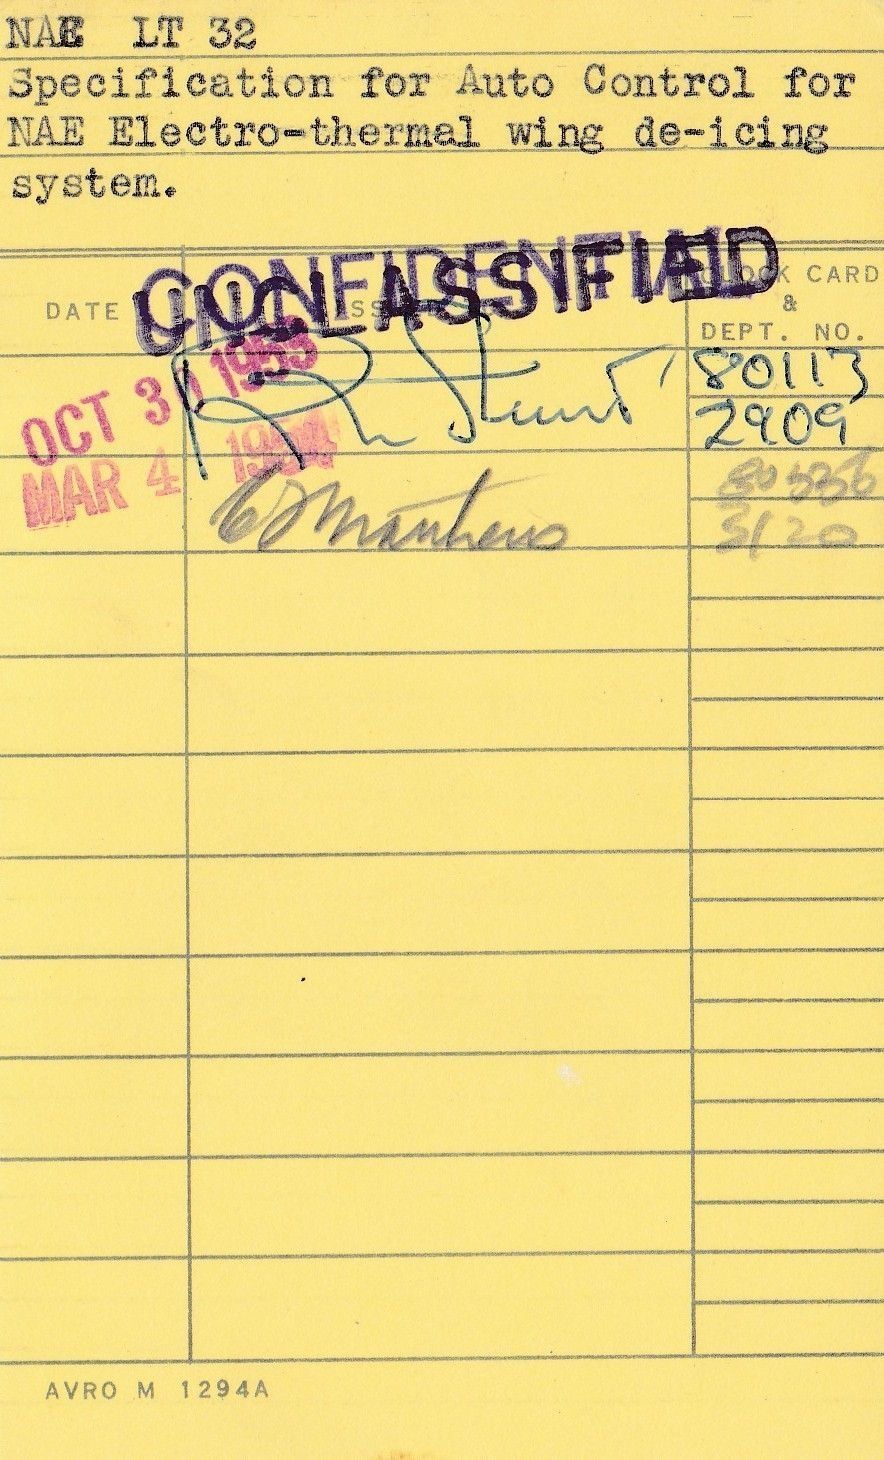 NAE LT 32
Specification for Auto Control for
NAE Electro-thermal wing de-icing
system.
CONFIDENTIAL
UNCLASSIFIED
DATE
CLOCK CARD
&
DEPT. NO.
OCT 30 1953
80113
2909
MAR 4 1954
3120
AVRO M 1294A